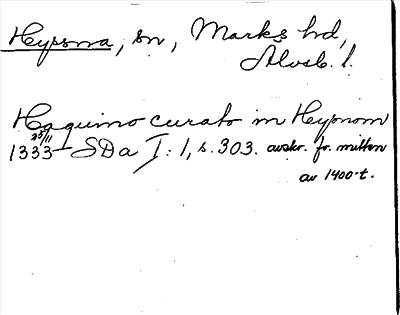 Hyssna, sn, Marks hd,
Älvsb. l.
Haquino curato in Hypnom
25/11
1333 SDa I: 1, s. 303. avskr. fr. mitten
av 1400-t.